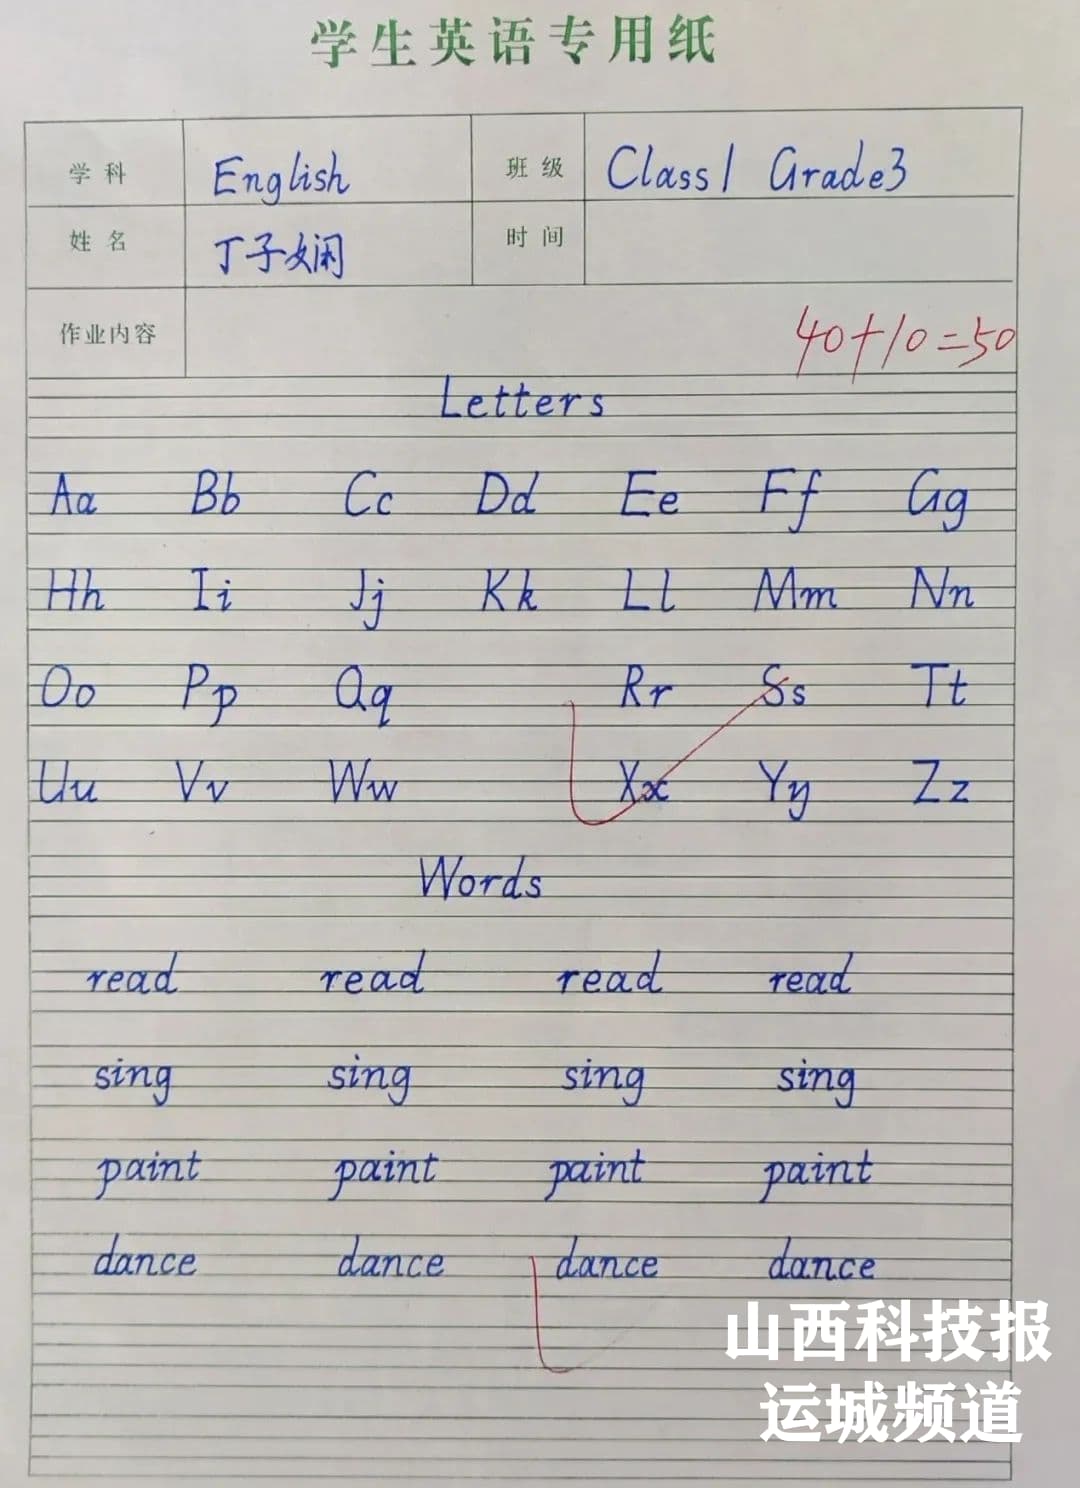 学生英语专用纸
学科 English 班级 Class1 Grade3
姓名 丁子娴 时间
作业内容
40+10=50
Letters
Aa Bb Cc Dd Ee Ff Gg
Hh Ii Jj Kk Ll Mm Nn
Oo Pp Qq Rr Ss Tt
Uu Vv Ww Xx Yy Zz
Words
read read read read
sing sing sing sing
paint paint paint paint
dance dance dance dance
山西科技报
运城频道